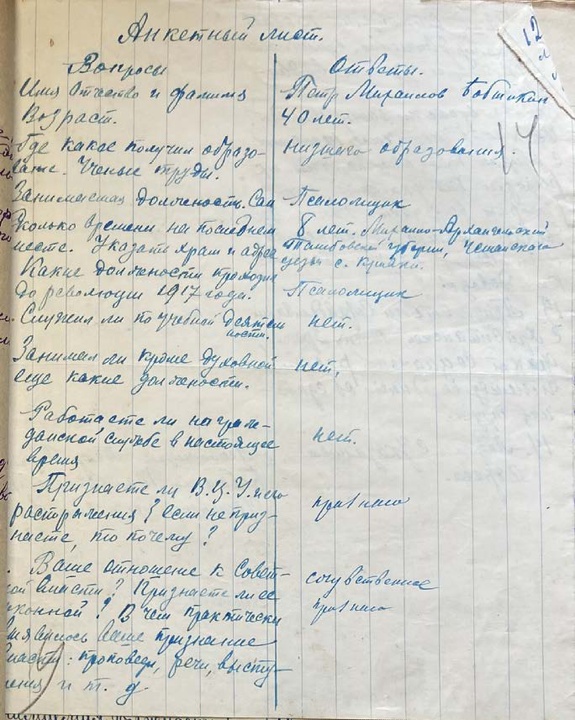 Анкетный лист.
Вопросы
Ответы.
Имя Отчество и фамилия
Петр Михаилов Бобтикин
Возраст.
40 лет.
Где какое получил образо-
вание. Ученые труды.
низшего образования.
Занимаемая должность. Сан
Псаломщик
Сколько времени на последнем
месте. Указать храм и адрес
8 лет. Михаило-Архангельский
Тамбовской губернии,
уезда с.
Какие должности проходил
до революции 1917 года.
Псаломщик
Служил ли по учебной деятель
ности.
нет.
Занимал ли кроме духовной
еще какие должности.
нет.
Работаете ли на граж-
данской службе в настоящее
время
нет.
Признаете ли В.Ц.У. и его
распоряжения? если не приз-
наете, то почему?
признаю
Ваше отношение к Совет-
ской власти? Признаете ли ее
законной? В чем практически
сочувственное
признаю
ваше признание
власти: проповеди, речи, высту-
ления и т. д
12
14